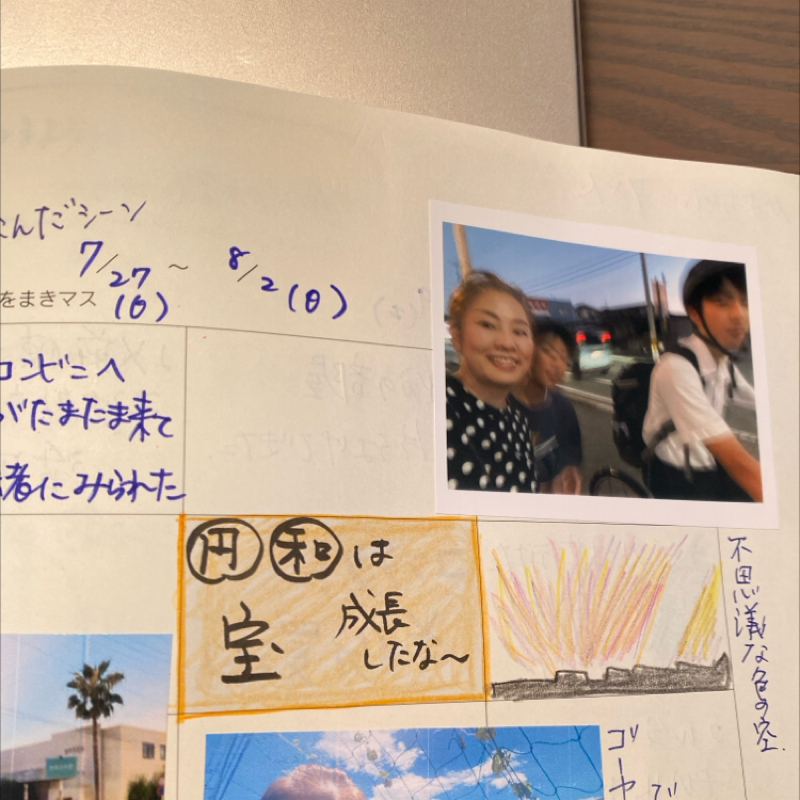 なんだシーン
7/27(月) ~ 8/2(日)
をまきマス
コンビニへ
がたまたま来て
者にみられた
円 和 は
宝 成長
したな〜
不思議な色の空
ゴーヤ
で